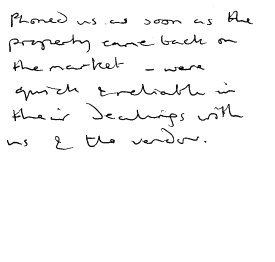 Phoned us as soon as the
property came back on
the market - were
quick & reliable in
their dealings with
us & the vendor.